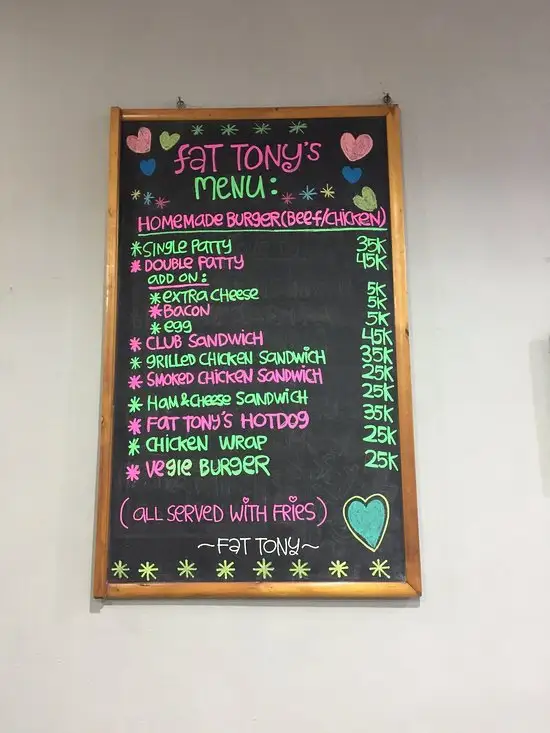 FAT TONY'S
MENU:
HOMEMADE BURGER (Beef/CHICKEN)
*SINGLE PATTY 35K
*DOUBLE PATTY 45K
ADD ON:
*EXTRA CHEESE 5K
*BACON 5K
*egg 5K
*CLUB SANDWICH 45K
*GRILLED CHICKEN SANDWICH 35K
*SMOKED CHICKEN SANDWICH 25K
*HAM & CHEESE SANDWICH 25K
*FAT TONY'S HOTDOG 35K
*CHICKEN WRAP 25K
*VEGIE BURGER 25K
(ALL SERVED WITH FRIES)
~FAT TONY~